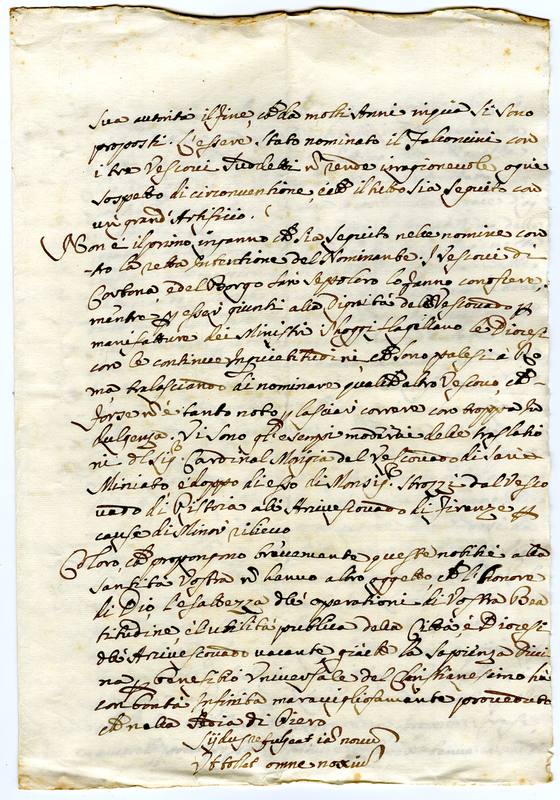 sua autorità il fine, che da molti Anni in qua si sono
proposti. L'essere stato nominato il Falconcini con
i tre Vescovi sudetti rende irragionevole ogni
sospetto di circonventione, e che il tutto sia seguito con
un grand'Artificio.
Non è il primo inganno che sia seguito nelle nomine con
-tro la retta Intentione del Nominante. I Vescovi di
Cortona, e del Borgo San Sepolcro lo fanno conoscere,
mentre p esser giunti alla Dignità del Vescovado p
manifatture dei Ministri hoggi flagellano le Diocesi
con le continue Inquietitudini che sono palesi a Ro
ma, tralasciando di nominare qualche altro Vescovo, che
forse n è tanto noto p lasciar correre con troppa In
dulgenza. Vi sono gl'esempi moderni delle traslatio
ni del Sig. Cardinal Morigia del Vescovado di San
Miniato e doppo di esso di Monsig. Strozzi dal Vesco
vado di Pistoia all'Arcivescovado di Firenze p
cause di Minor rilievo
Coloro, che propongono brevemente queste notitie alla
Santità Vostra n hanno altro oggetto, che l'honore
di Dio, l'esaltezza delle operationi di Vostra Bea
titudine e l'utilità publica della Città, e Diocesi
dell'Arcivescovado vacante, giache la Sapienza Divi
na p benefitio Universale del Christianesimo ha
con bontà Infinita maravigliosamente proveduto
che nella di Piero
Sijdus refulgeat iam novum
Ut tollat omne noxium